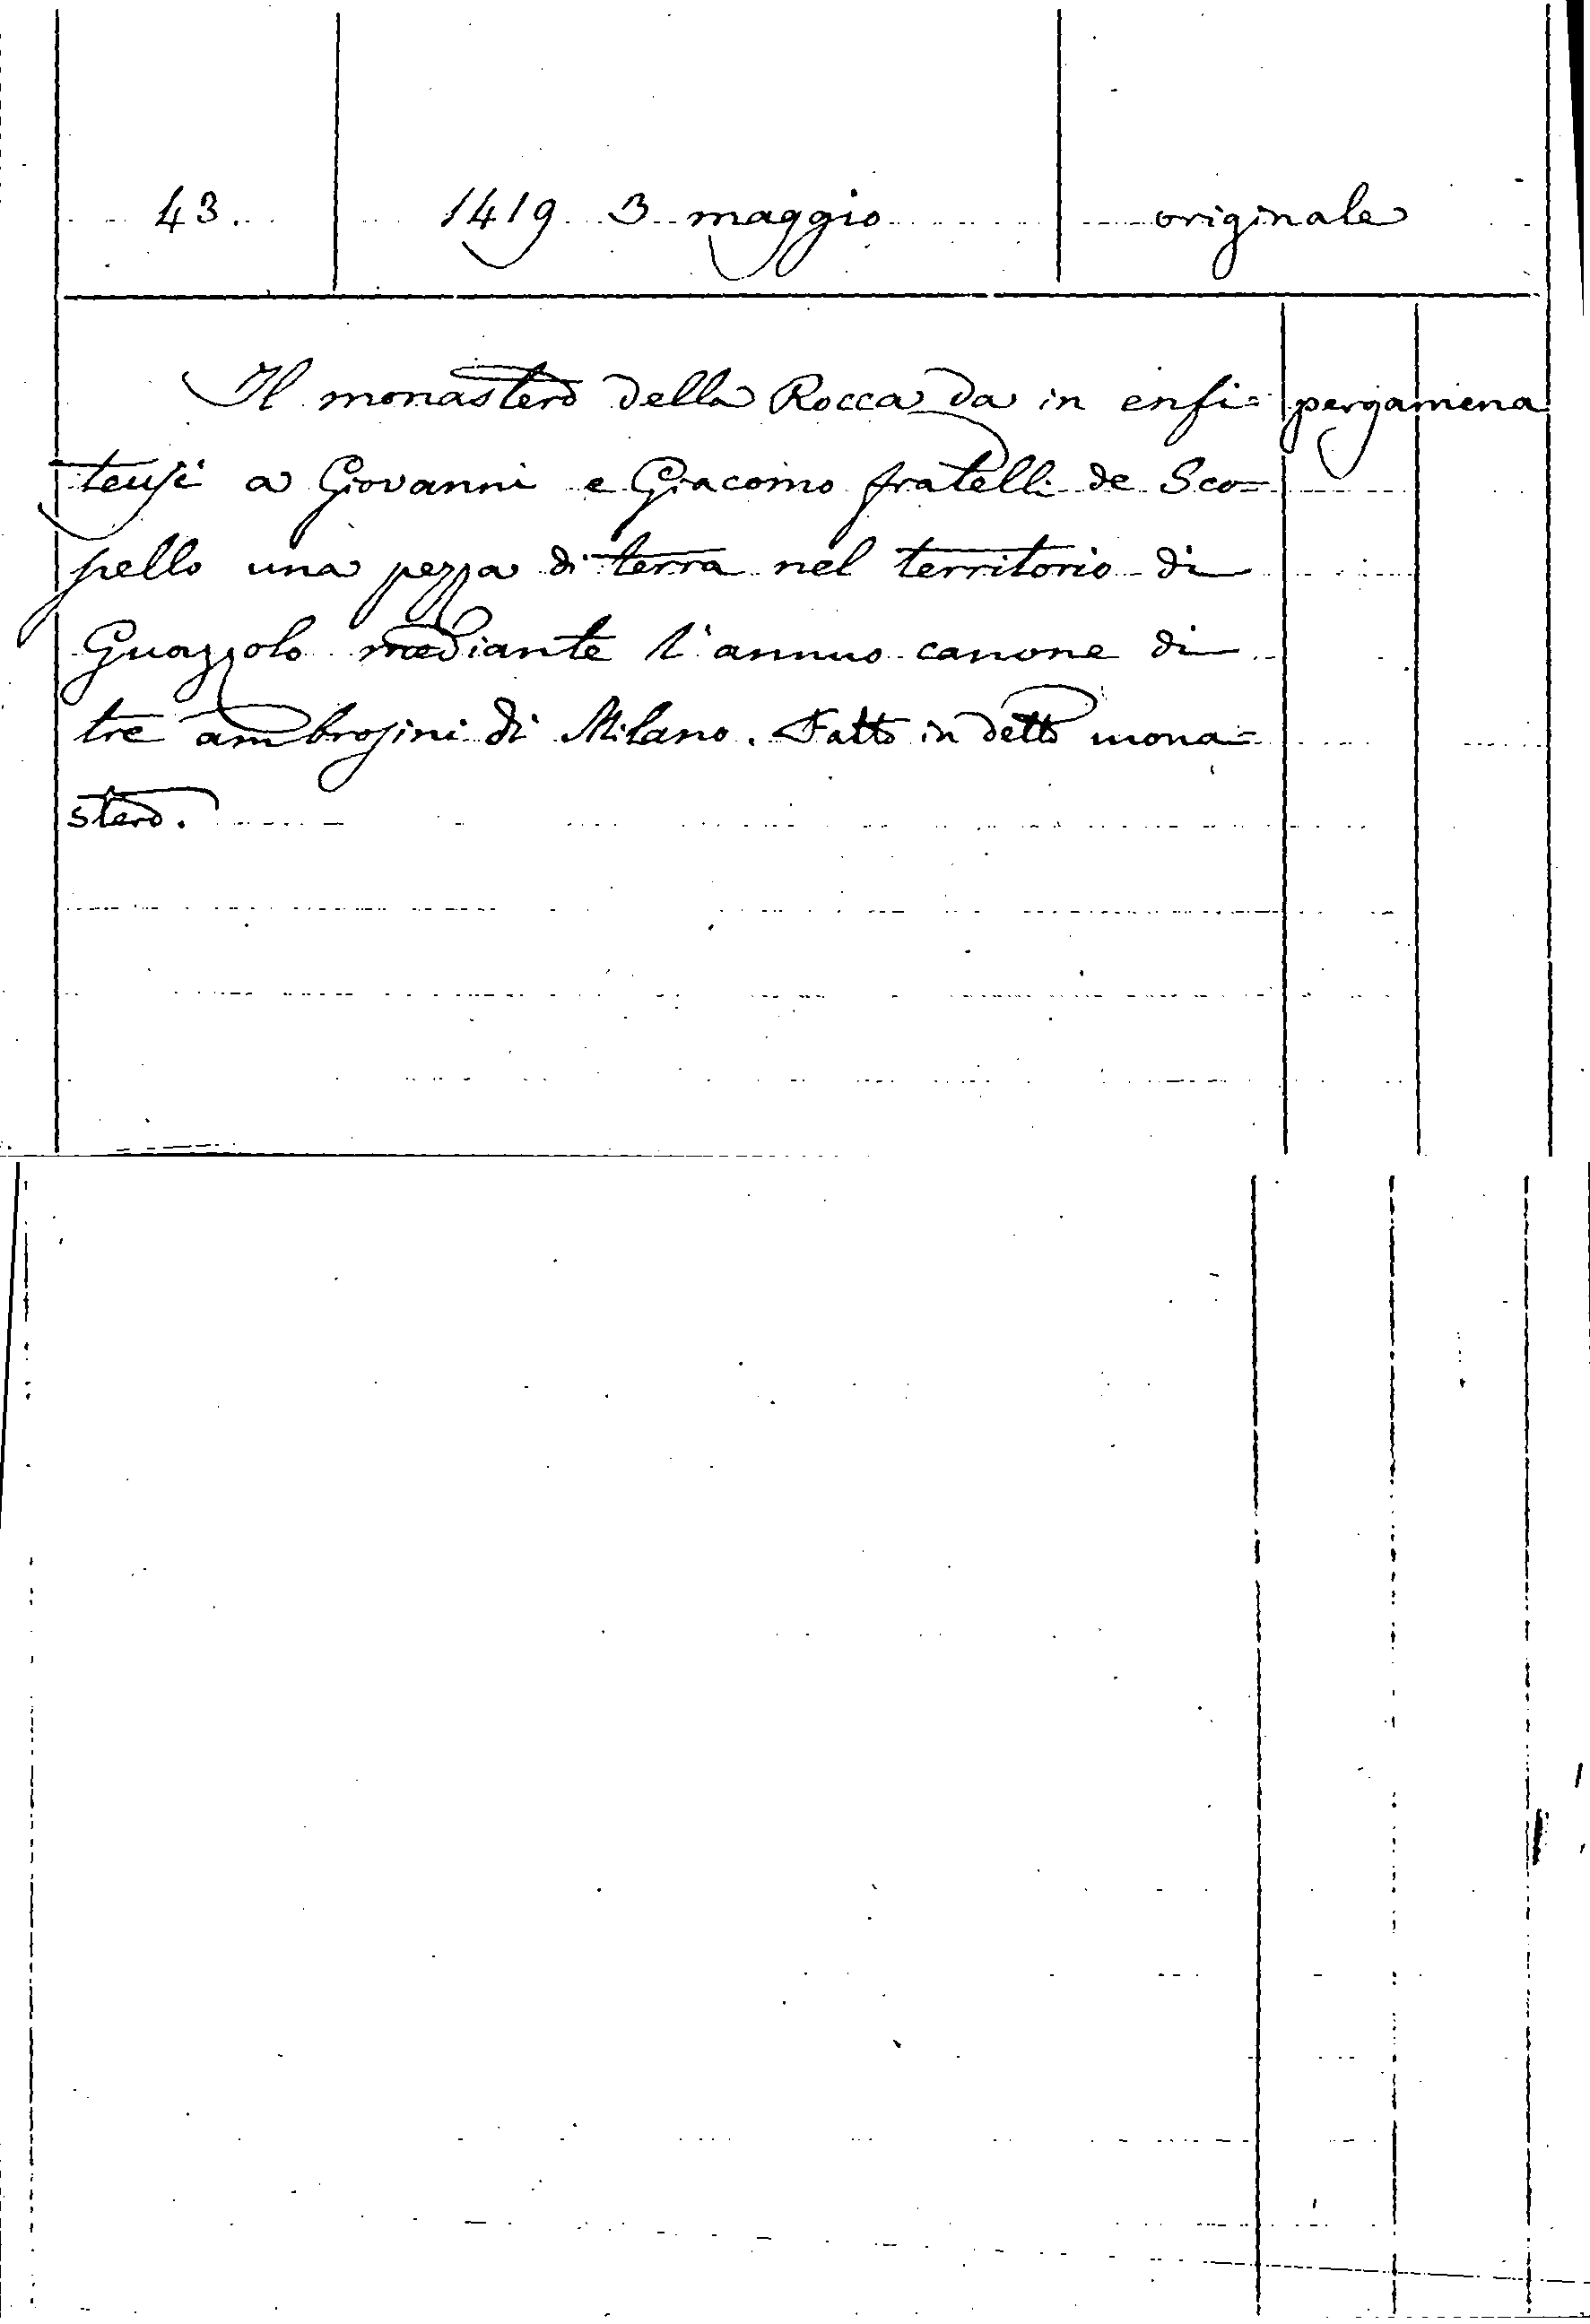 43. 1419 3 maggio originale
Il monastero della Rocca da in enfi= pergamena
teusi a Giovanni e Giacomo fratelli de Sco=
pello una pezza di terra nel territorio di
Guazzolo mediante l'annuo canone di
tre ambrosini di Milano. Fatto in detto mona=
stero.